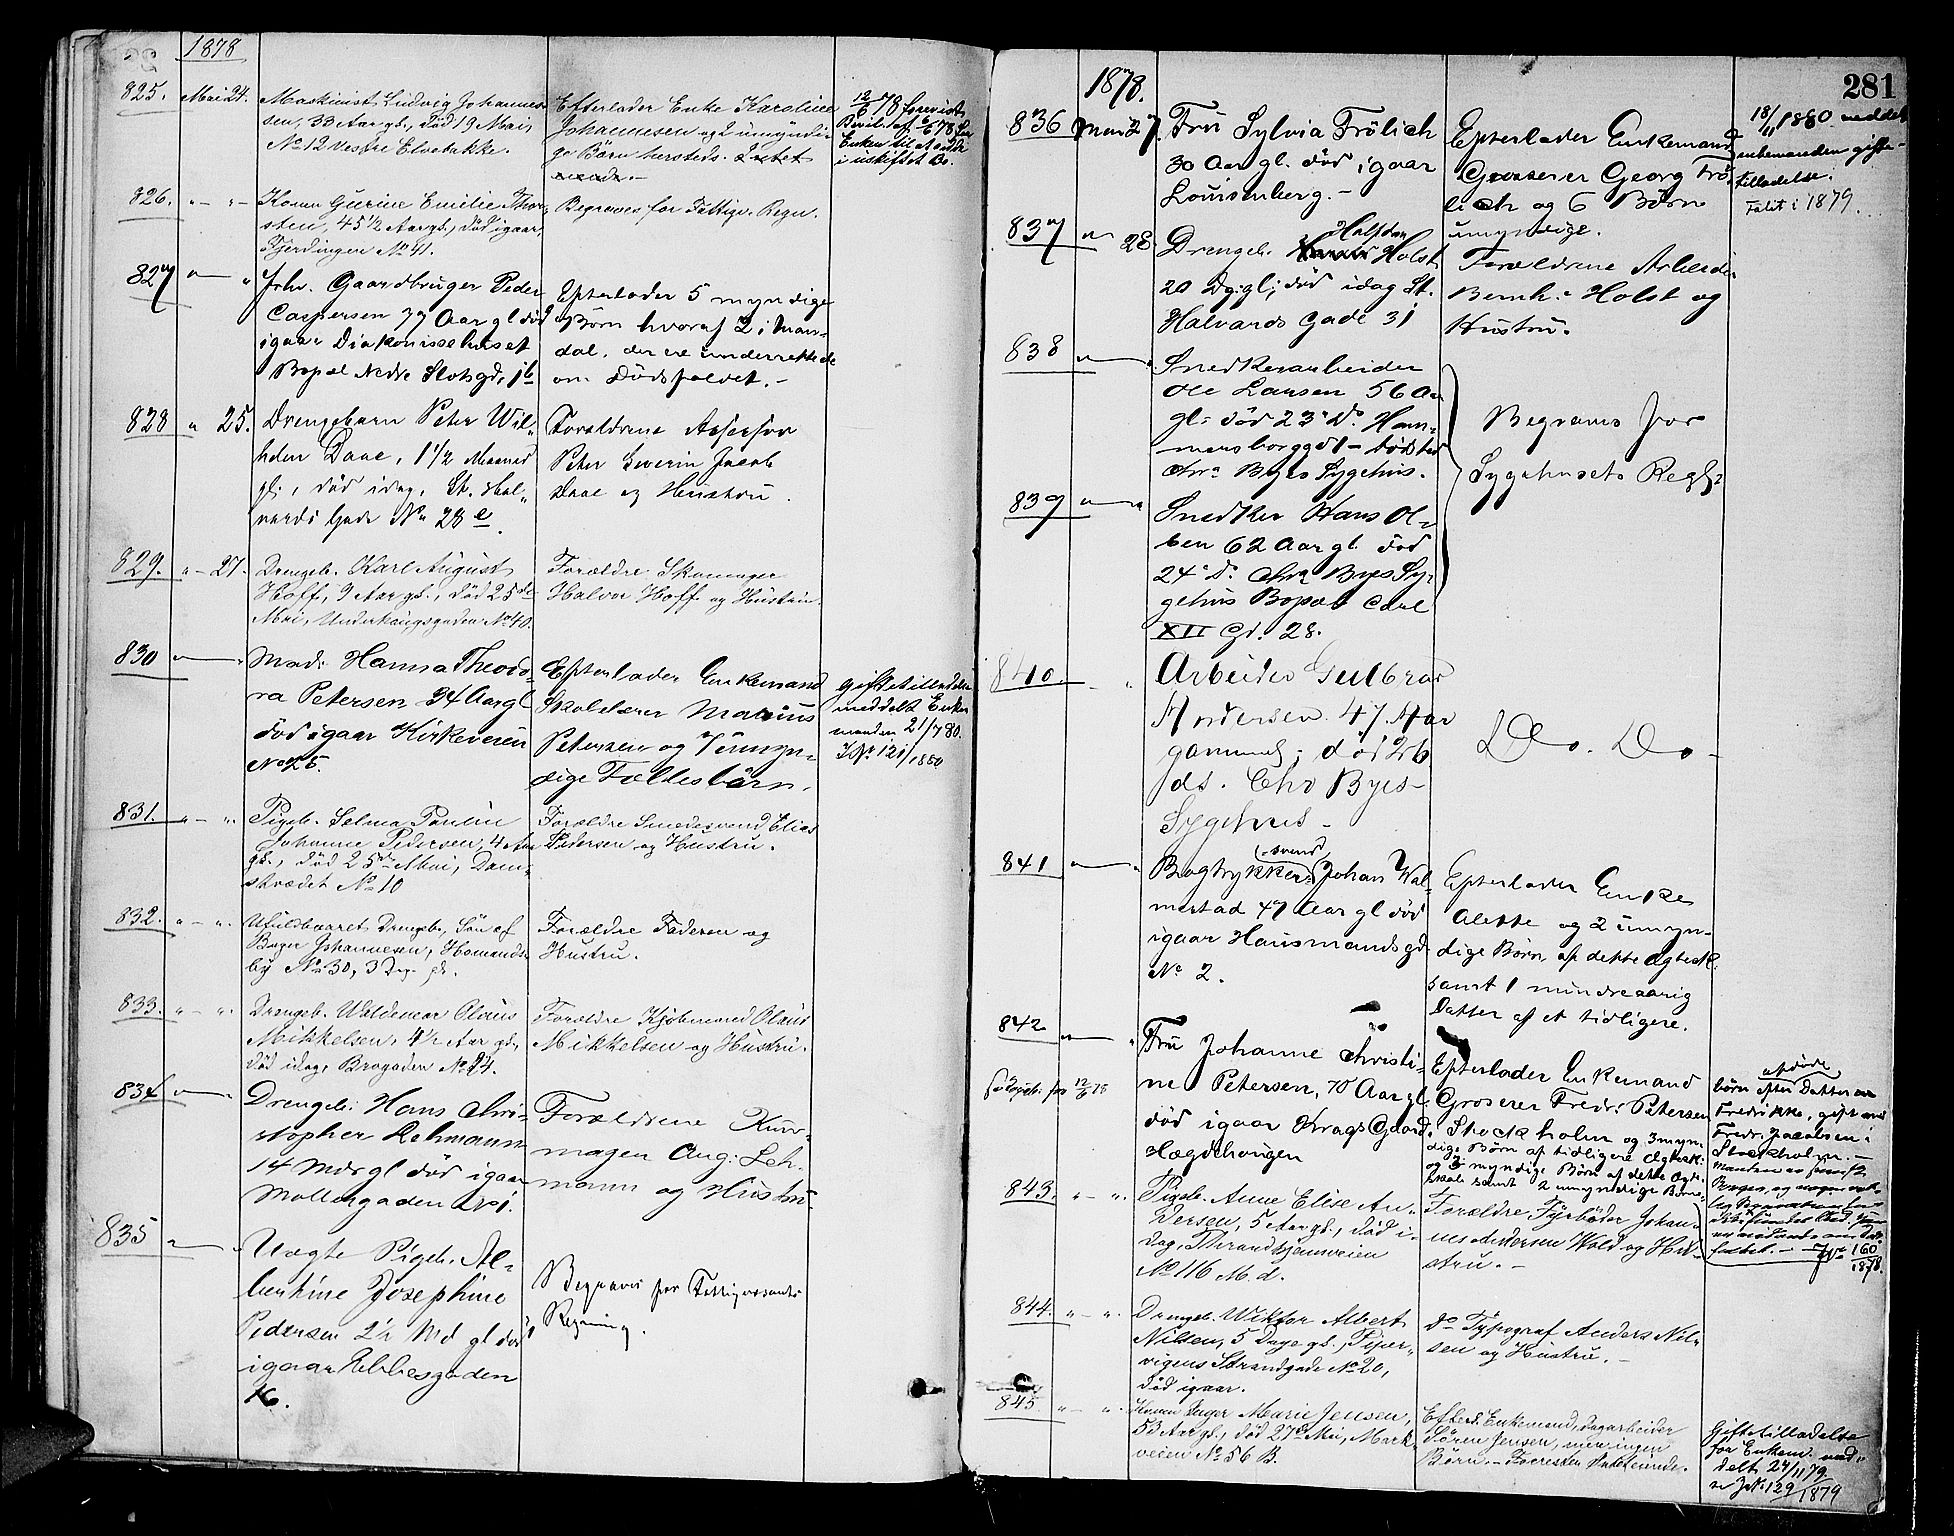 1878
825. Mai 24. Maskinist Ludvig Johannes-
sen, 33 Aar gl., død 19 Mai,
No 12 Vestre Elvebakke.
Efterlader Enke Karoline
Johannesen og 2 umyndi-
ge Børn hersteds. Intet
12/6 78 forevist
Bevil. af 6/6 78 for
Enken til at sidde
i uskiftet Bo.
826. " - " Konen Gurine Emilie Thor-
sten, 45 1/2 Aar gl., død igaar,
Fjerdingen No 41.
Begraves for Fattigv. Regn.
827 " - " Fhv. Gaardbruger Peder
Caspersen 77 Aar gl død
igaar Diakonissehuset
Bopæl Nedre Slotsgd. 16
Efterlader 5 myndige
Børn hvoraf 2 i Man-
dal, der ere underrettede
om Dødsfaldet. -
828 " 25. Drengebarn Peter Wil-
helm Daae, 1 1/2 Maaned
gl., død idag, St. Hal-
vards Gade No 28 e.
Forældrene Assessor
Peter Severin Jacob
Daae og Hustru.
829. " - 27. Drengeb. Karl August
Hoff, 9 Aar gl., død 25de
Mai, Underhaugsgaden No 40.
Forældre Skomager
Halvor Hoff og Hustru.
830 " - " Mad. Hanna Theodo-
ra Petersen 34 Aar gl
død igaar Kirkeveien
No 25.
Efterlader Enkemand
Skolelærer Marius
Petersen og 7 umyn-
dige Fællesbørn.
Giftetilladelse
meddelt Enke-
manden 21/7 80.
J No 121/1880
831. " - " Pigeb. Selma Pauline
Johanne Pedersen, 4 Aar
gl., død 25de Mai, Dam-
strædet No 10
Forældre Smedesvend Elias
Pedersen og Hustru.
832. " - " Ufuldbaaret Drengeb., Søn af
Bager Johannesen, Homands-
by No 30, 3 Dage gl.
Forældre Faderen og
Hustru.
833. " - " Drengeb. Waldemar Olaus
Mikkelsen, 4 1/2 Aar gl.,
død idag, Brogaden No 14.
Forældre Kjøbmand Olaus
Mikkelsen og Hustru.
834 " - Drengeb. Hans Chri-
stopher Lehmann
14 Mdr gl død igaar
Møllergaden No 1.
Forældrene Kurv-
mager Aug: Leh-
mann og Hustru
835 " - " Uægte Pigeb. Al-
bertine Josephine
Pedersen 2 1/2 Md gl død
igaar Rebbesgaden
16.
Begraves for Fattigvæsenets
Regning.
281
1878.
836 Mai 27. Fru Sylvia Frölich
30 Aar gl. død igaar
Louisenberg. -
Efterlader Enkemand
Grosserer Georg Frö-
lich og 6 Børn
umyndige.
18/11 1880 meddelt
Enkemanden gifte-
tilladelse.
Fallit i 1879.
837 " 28 Drengeb. Halfdan Holst
20 Dg. gl; død idag St.
Halvards Gade 31
Forældrene Arbeider
Bernh. Holst og
Hustru.
838 " - " Snedkerarbeider
Ole Larsen 56 Aar
gl. død 23 ds. Ham-
mersborggd 1 - dødsted
Chra Byes Sygehus.
Begraves for
Sygehusets Regg.
839 " - " Snedker Hans Ol-
sen 62 Aar gl. død
24 ds. Chra Byes Sy-
gehus Bopæl Carl
XII Gd. 28.
840. - " Arbeider Gulbran
Andersen 47 Aar
gammel; død 26
ds. Chr Byes
Sygehus -
Do. Do -
841 " - " Bogtrykkersvend Johan Wal-
mestad 47 Aar gl død
igaar Hausmandsgd.
No 2.
Efterlader Enke
Alette og 2 umyn-
dige Børn af dette Ægtesk.
samt 1 mindreaarig
Datter af et tidligere.
842 " - " Fru Johanne Christi-
ne Petersen, 70 Aar gl.
død igaar Krags Gaard
Hægdehaugen
Efterlader Enkemand
Grosserer Fredr. Petersen
Stockholm og 3 myn-
dige Børn af tidligere Ægtesk.
og 3 myndige Børn af dette Ægte-
skab samt 2 umyndige Børne-
børn efter afdøde Datter
Fredrikke, gift med
Fredr. Jacobsen i
Stockholm. -
No 160/1878.
843. " - " Pigeb. Anne Elise An-
dersen, 5 Aar gl., død i-
dag, Throndhjemsveien
No 116 M. d.
Forældre Fyrbøder Johan-
nes Andersen Wold og Hu-
stru. -
844. " - " Drengeb. Wiktor Albert
Nilsen, 5 Dage gl., Piper-
vigens Strandgade No 20,
død igaar.
do Typograf Anders Nil-
sen og Hustru. -
845. " - " Konen Inger Marie Jensen,
53 Aar gl., død 27de Mai, Mark-
veien No 56 B.
Efterl. Enkemand, Dagarbeider
Søren Jensen, men ingen
Børn. -
Giftetilladelse
for Enkem. med-
delt 24/11 79.
J No 129/1879